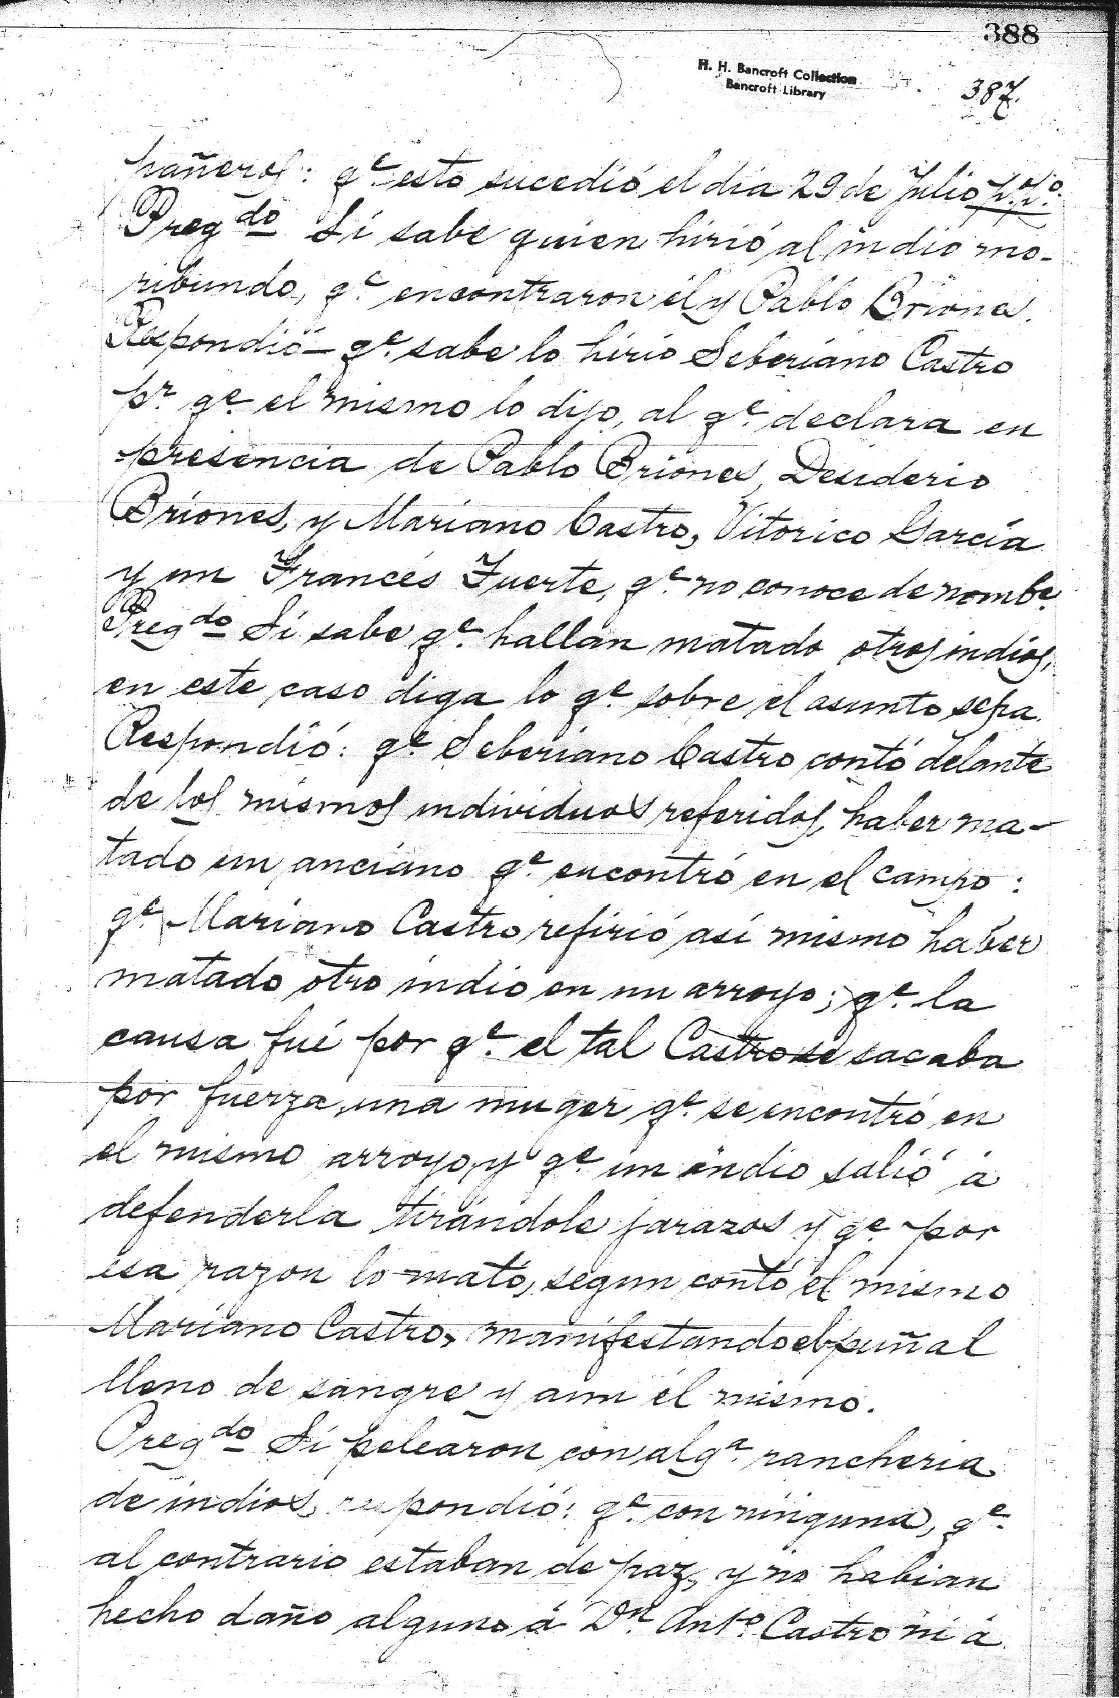 388
H. H. Bancroft Collection
Bancroft Library
387.
pañeros: qe. esto sucedió el dia 29 de Julio p.o p.o
Pregdo Si sabe quien hirió al indio mo-
ribundo, qe. encontraron él y Pablo Briones.
Respondió— qe. sabe lo hirió Seberiano Castro
pr. qe. el mismo lo dijo, al qe. declara en
presencia de Pablo Briones, Desiderio
Briones, y Mariano Castro, Vitorico García
y un Francés Fuerte, qe. no conoce de nombe.
Pregdo Si sabe qe. hallan matado otros indios,
en este caso diga lo qe. sobre el asunto sepa.
Respondió: qe. Seberiano Castro contó delante
de los mismos individuos referidos, haber ma-
tado un anciano qe. encontró en el campo:
qe. Mariano Castro refirió así mismo haber
matado otro indio en un arroyo; qe. la
causa fué por qe. el tal Castro se sacaba
por fuerza, una muger qe. se encontró en
el mismo arroyo, y qe. un indio salió á
defenderla tirándole jarazos y qe. por
esa razon lo mató, segun contó el mismo
Mariano Castro, manifestando el puñal
lleno de sangre y aun él mismo.
Pregdo Si pelearon con alga. rancheria
de indios, respondió: qe. con ninguna, qe.
al contrario estaban de paz, y no habian
hecho daño alguno á Dn. Anto. Castro ni á